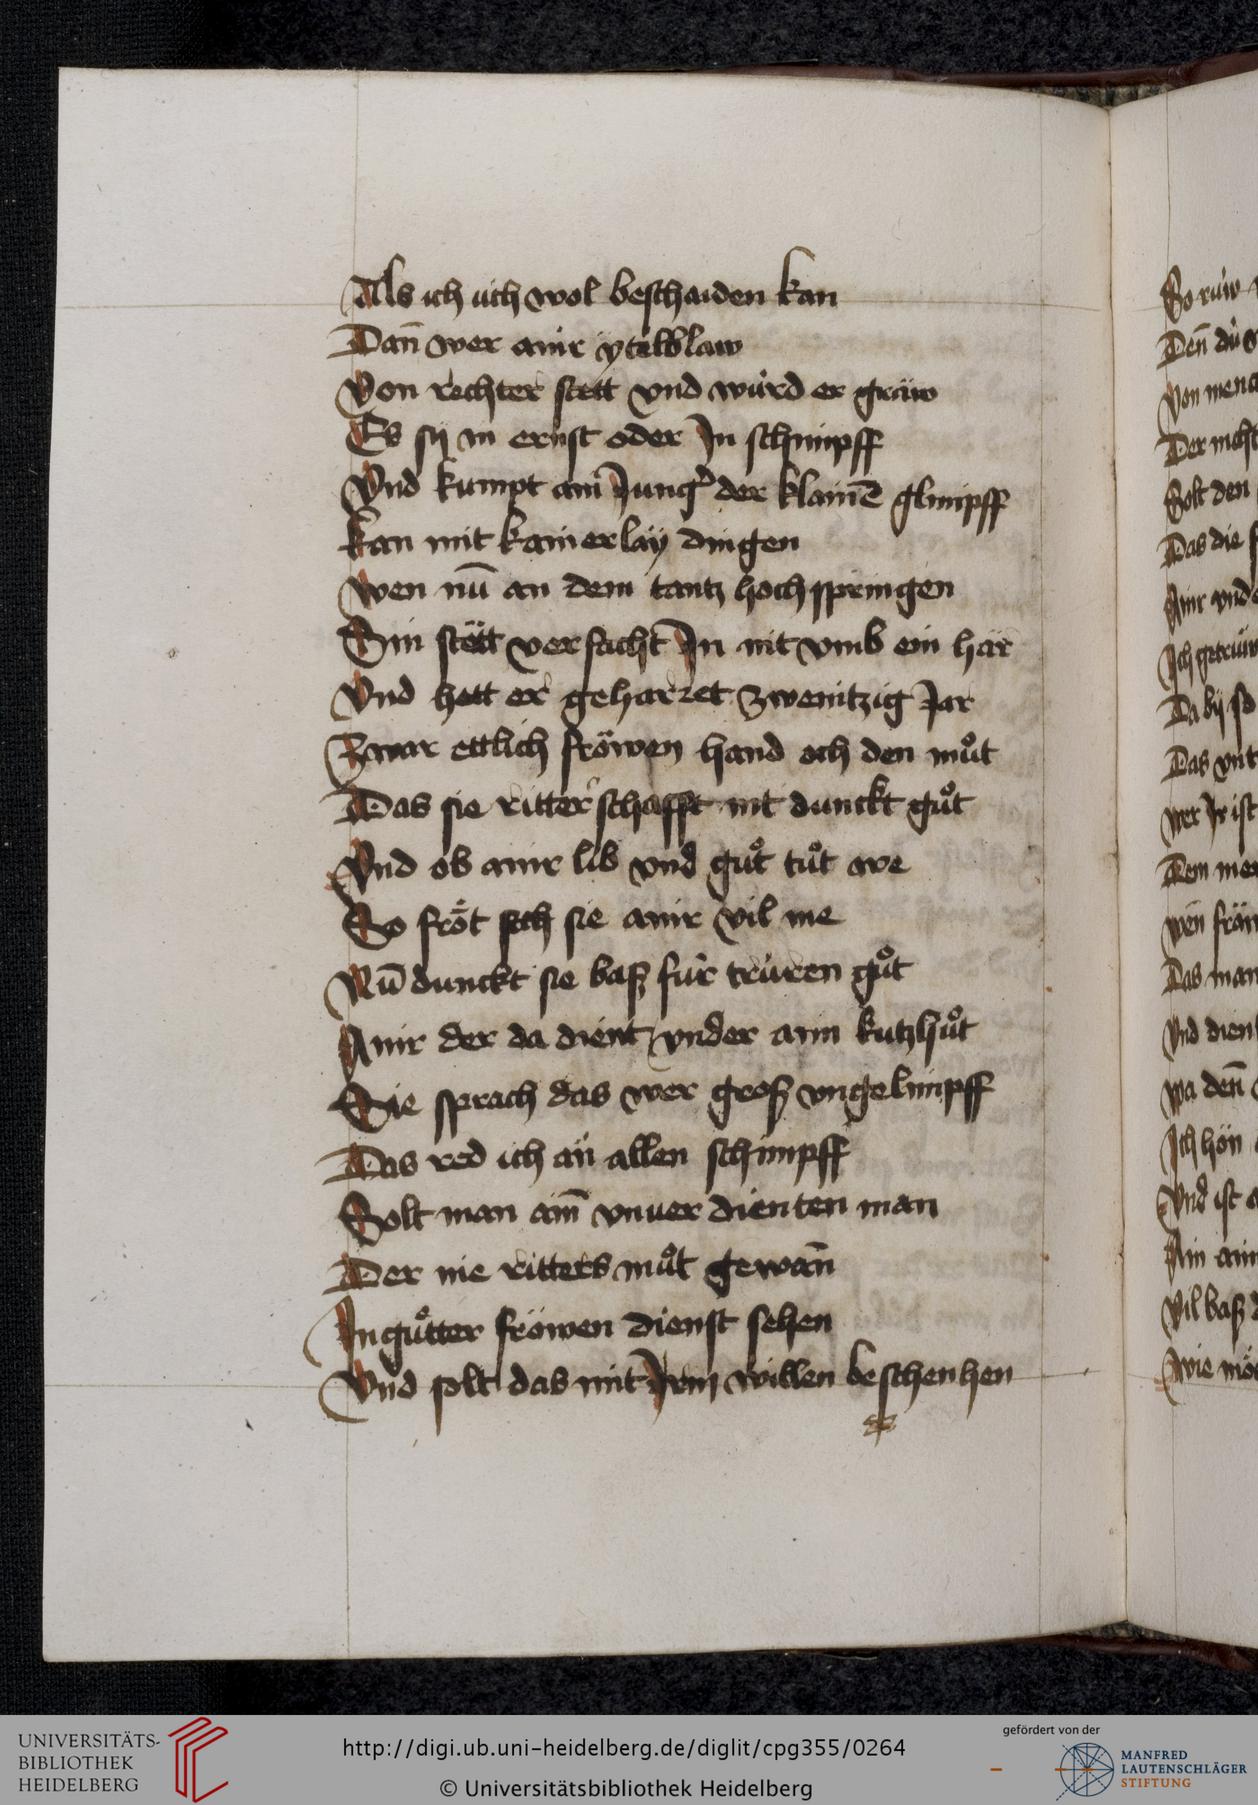 Als ich üch wol beschaiden kan
Dan̄ wer ainr ytelblaw
Von rechter stett vnd würd er gräw
Es sy in ernst oder In schimpff
Vnd kumpt ain Jung der klainē glimpff
kan mit kainerlay dingen
wen nū an dem tantz hoch springen
Sin stëtt versacht In nit vmb ein här
Vnd hett er geharret zwenitzig Jar
Zwar ettlich fröwen hand och den mu̇t
Das sie ritterschafft nit dunckt gůt
Vnd ob ainr lib vnd gůt tůt we
So fröt sich sie ainr vil me
Nū dunckt sie baß für trüren gůt
Ainr der da dient vnder aim kutzhůt
Die sprach das wer groß vngelimpff
Das red ich än allen schimpff
Solt man aim̄ vnuerdienten man
Der nie ritters můt gewan̄
In gůtter fröwen dienst sehen
Vnd solt das mit Irm willen beschenhen
So rüw
Den̄ dü
Von
Der nicht
Solt den
Das die
Ainr vnd
Ich getrüw
Da by
Das
wer Ir ist
Dem
wen̄
Das man
Vnd dien
wa den̄
Ich hön
Vnd ist
Ain ain
Vil baß
wie
UNIVERSITÄTS-
BIBLIOTHEK
HEIDELBERG
http://digi.ub.uni-heidelberg.de/diglit/cpg355/0264
© Universitätsbibliothek Heidelberg
gefördert von der
MANFRED
LAUTENSCHLÄGER
STIFTUNG